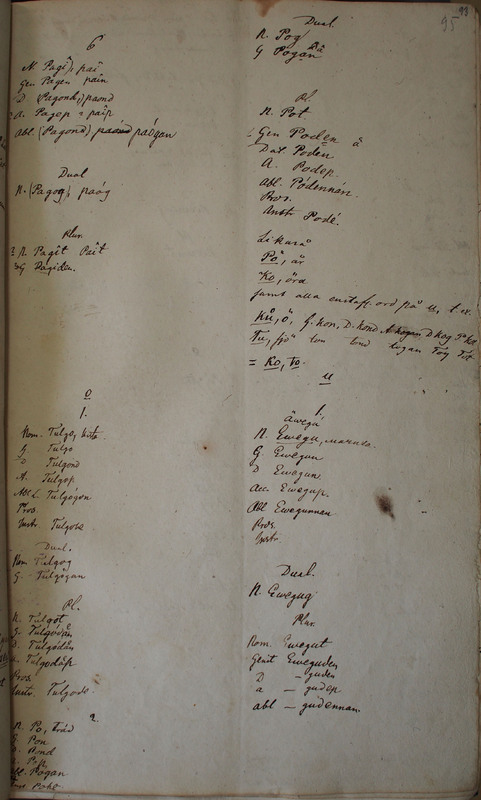 6
N. Pagî), paî
Gen Pagen pain
D. (Pagond,) paond
A. Pagep paîp
Abl. (Pagond) paógan
Dual
N. (Pagog), paóg
Plur.
N. Pagît Paît
G Pagiden.
o
1.
Nom. Tulgo,
G. Tulgo
D Tulgond
A. Tulgop
Abl. Tulgogan
Pros
Instr. Tulgose
Dual.
Nom Tulgog
G. Tulgógan
Pl.
N. Tulgot
G. Tulgódån
D. Tulgodån
A. Tulgodåp
Pros
Instr. Tulgode
2.
N. Po, tråd
G Pon
D. Pond
Abl. Pógan
95 93
Dual.
N. Pog
G Pogan
Pl.
N. Pot
Gen Poden
Dat Poden
A. Podep
Abl. Pódennan.
Pros.
Instr Podé.
Likaså
Po, år
Ko, öra
samt alla enstaf. ord på u, t. ex.
Ku, ö, G. kon, D. kond A. kogan, D kog
Tu, sjö ton tond togan Tog Tot
= Ko, To.
u
1.
äwegu
N. Ewegu,
G. Ewegun
D Ewegun
Acc. Ewegup.
Abl Ewegunnan
Pros.
Instr
Dual.
N. Ewegug
Plur.
Nom. Ewegut
Genit Eweguden
D — guden
a — gudep
abl — gudennan.